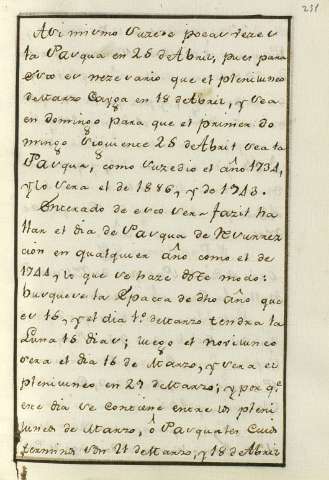 231
Asi mismo suzede pocas vezes
la Pasqua en 25 de Abril, pues para
esto es nezesario que el plenilunio
de Marzo Cayga en 18 de Abril, y sea
en domingo para que el primer do
mingo siguiente 25 de Abril sea la
Pasqua, como suzedio el año 1734,
y lo sera el de 1886, y de 1943.
Enterado de esto sera fazil ha
llar el dia de Pasqua de Resurrez
cion en qualquier año como el de
1744, lo que se haze deste modo:
busquese la Epacta de dho año que
es 16, y el dia 1º de Marzo tendra la
Luna 16 dias; luego el novilunio
sera el dia 16 de Marzo, y sera el
plenilunio en 29 de Marzo; y por q.e
este dia se contiene entre los pleni
lunios de Marzo, ô Pasquales Cuios
terminos son 21 de Marzo, y 18 de Abril